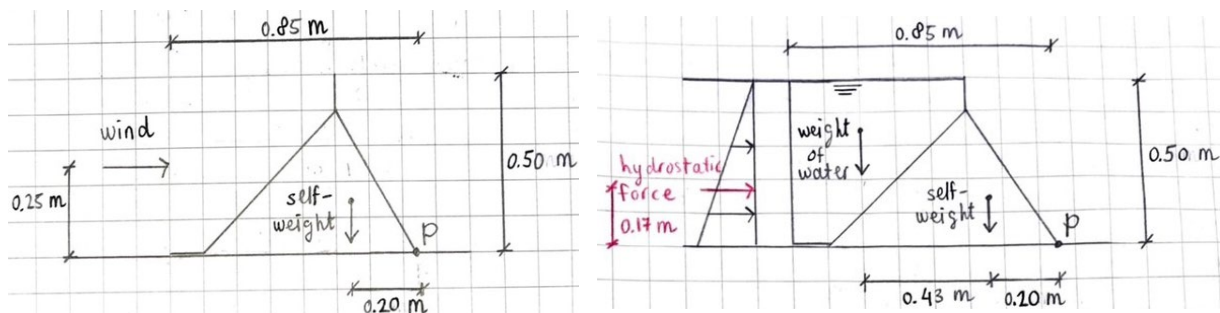 0.85 m
wind
0.25 m
self-
weight
0.50 m
P
0.20 m
0.85 m
weight
of
water
hydrostatic
force
0.17 m
self-
weight
0.50 m
P
0.43 m
0.20 m